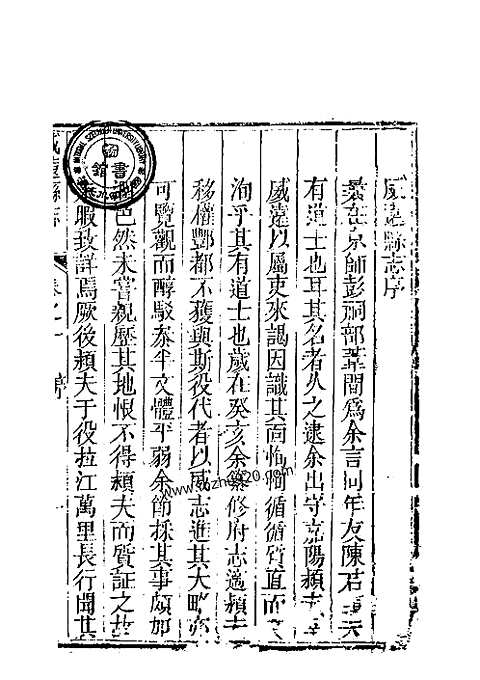 威遠縣志序
曩在京師彭嗣部 間爲余言同年友陳
有道士也耳其名者久之逮余出守嘉陽頛夫
威遠以屬吏來謁因識其面恂恂循循質直而
洵乎其有道士也歲在癸亥余纂修府志適頛夫
移權酆都不獲與斯役代者以威志進其大略亦
可覽觀而醇駁叅半文體平弱余節採其事頗加
邑然未嘗親歷其地恨不得頛夫而質証之故
暇致詳焉厥後頛夫于役拉江萬里長行聞其
威遠縣志
卷之一
序
www.szfz020.com